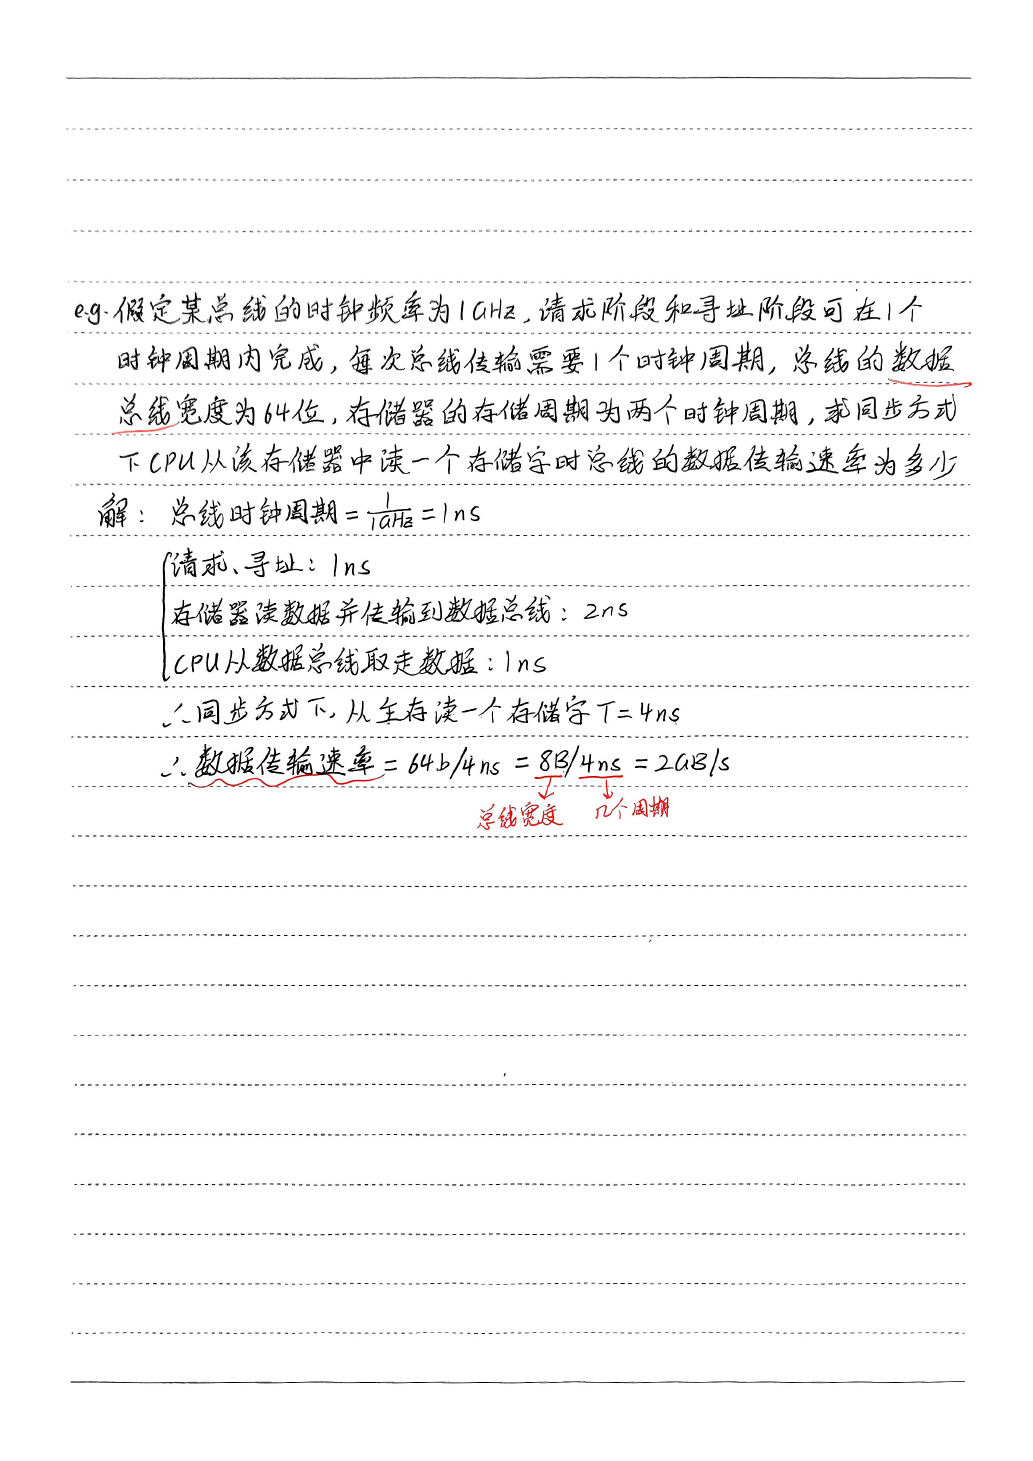 e.g. 假定某总线的时钟频率为1GHz，请求阶段和寻址阶段可在1个
时钟周期内完成，每次总线传输需要1个时钟周期，总线的数据
总线宽度为64位，存储器的存储周期为两个时钟周期，求同步方式
下CPU从该存储器中读一个存储字时总线的数据传输速率为多少
解：总线时钟周期=1/1GHz=1ns
请求、寻址：1ns
存储器读数据并传输到数据总线：2ns
CPU从数据总线取走数据：1ns
∴同步方式下，从主存读一个存储字T=4ns
∴数据传输速率=64b/4ns=8B/4ns=2GB/s
总线宽度 几个周期